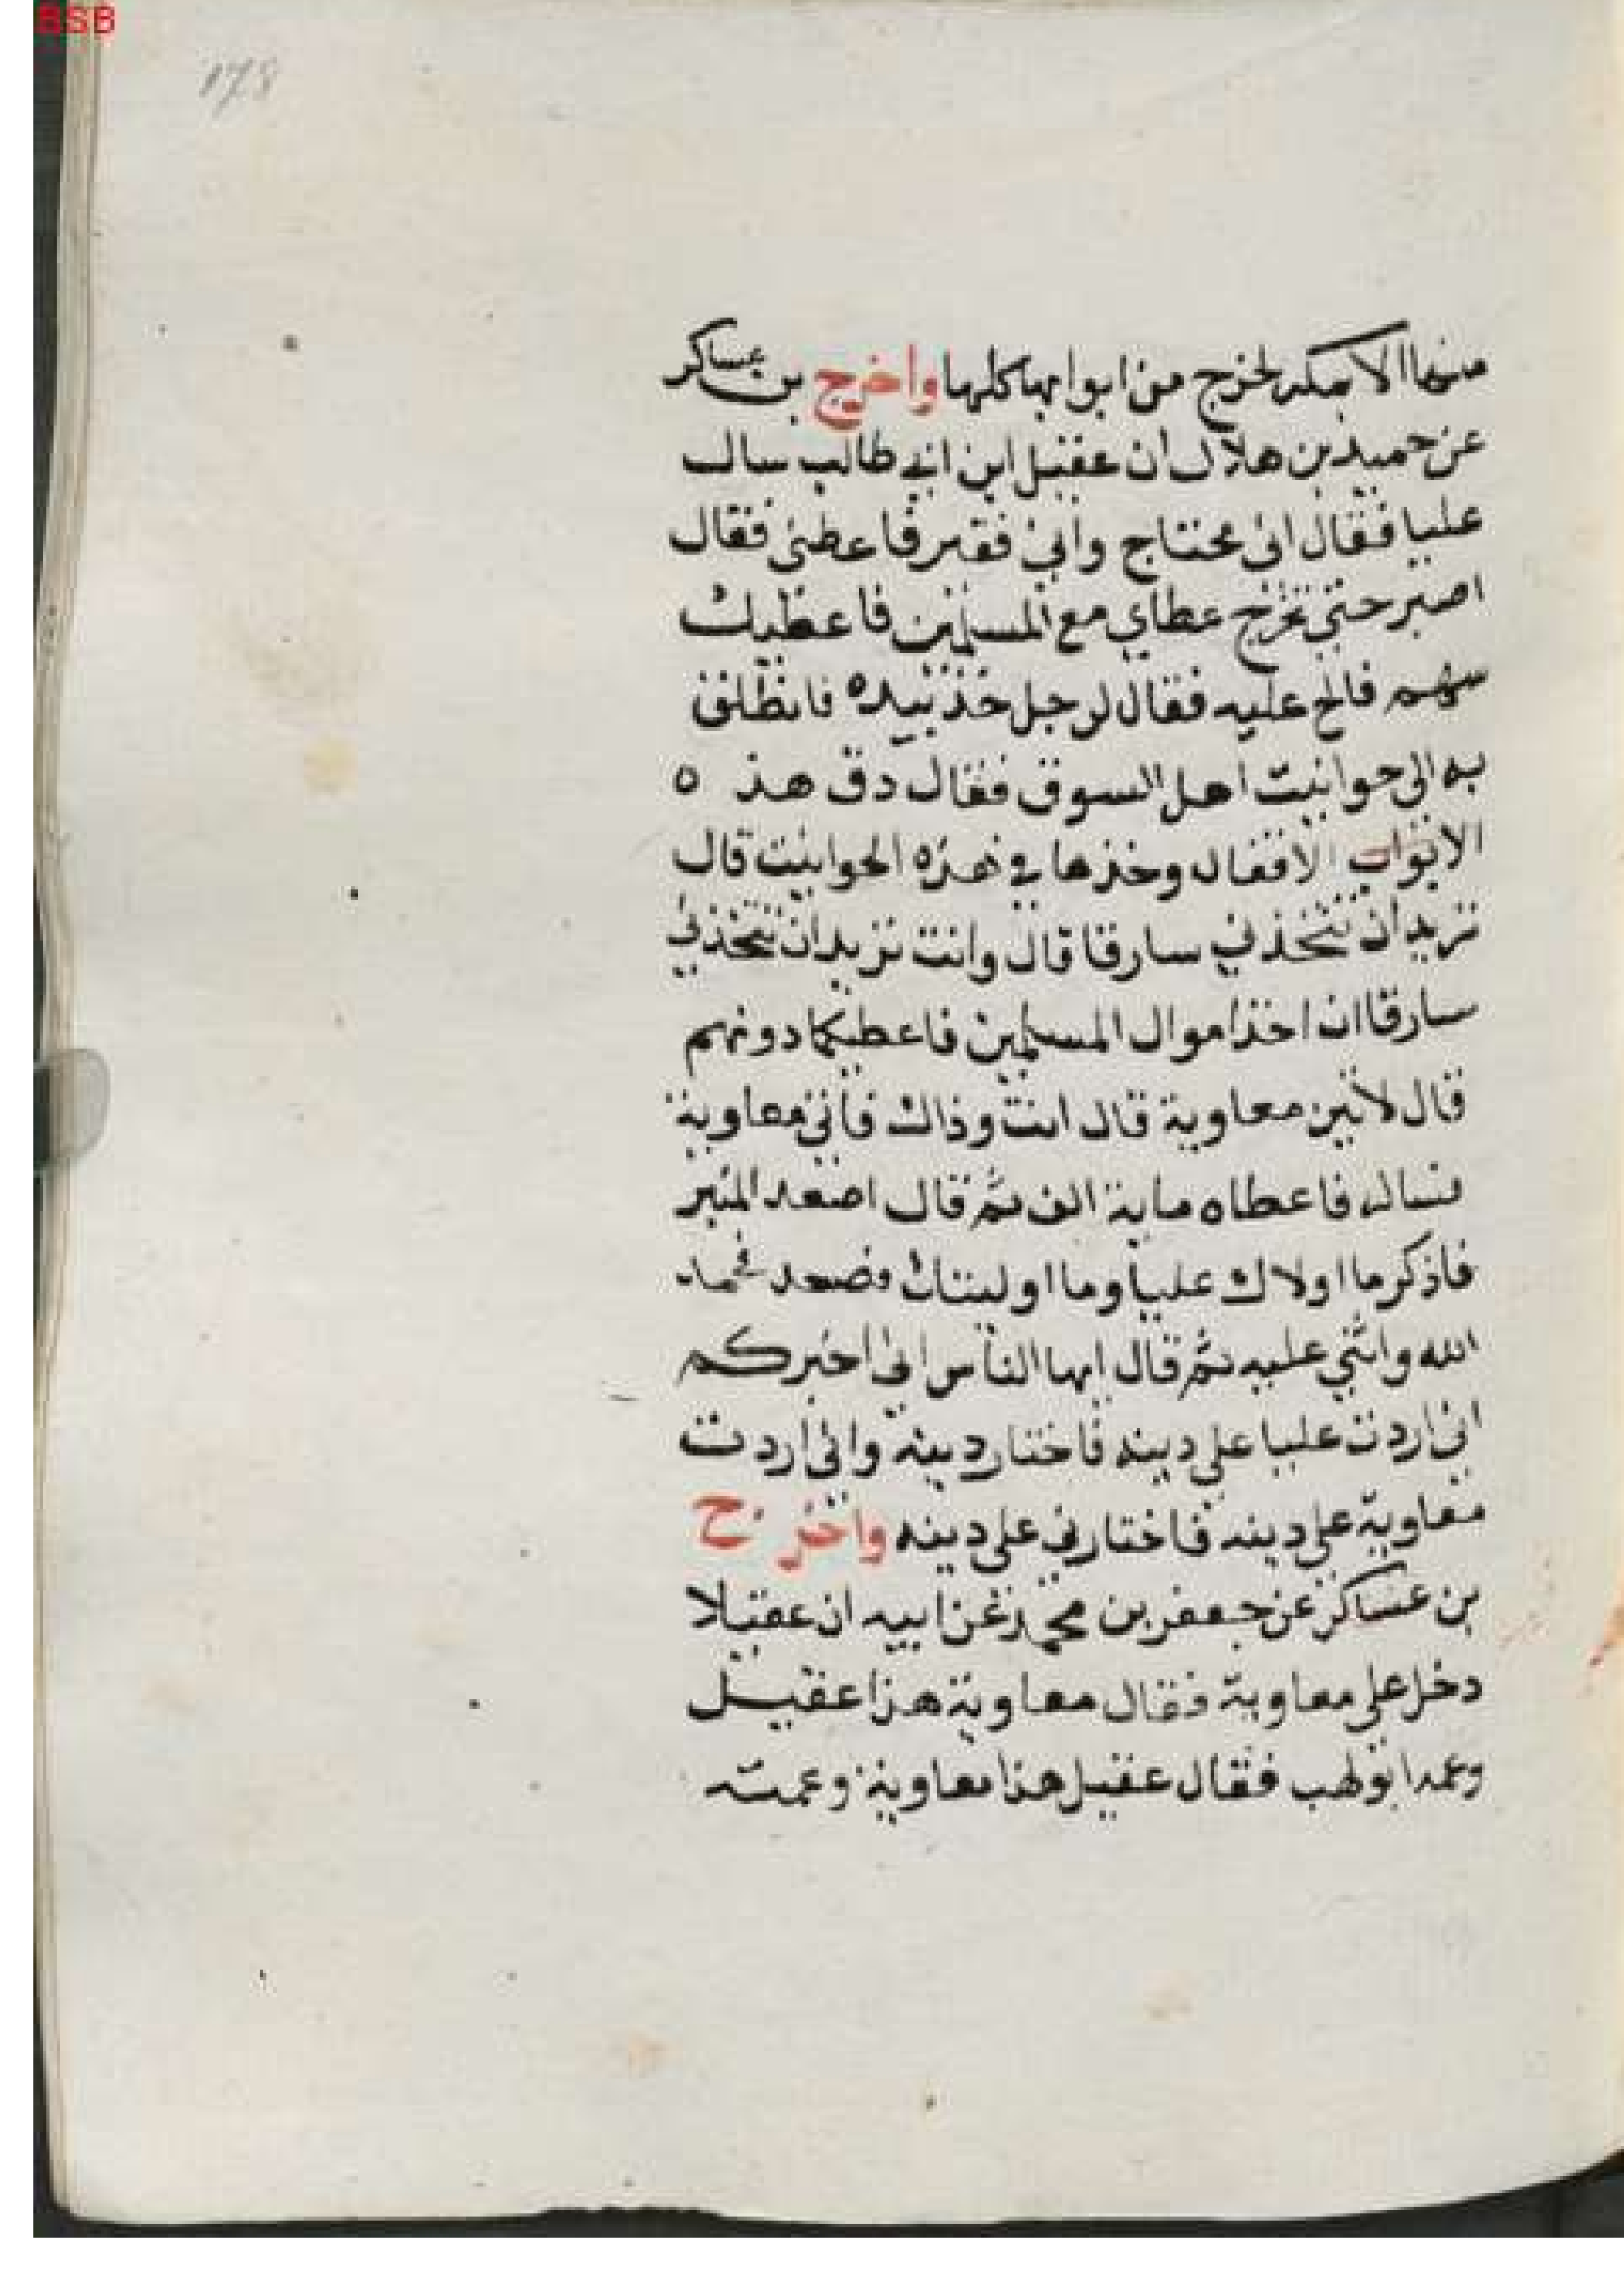 BSB
178
منها الا بمكر لخرج من ابوابها كلها واخرج بن عساكر
عن حميد بن هلال ان عقيل ابن ابي طالب سال
عليا فقال انى محتاج وانيْ فقير فاعطنى فقال
اصبر حتي تخرج عطاي مع المسلمين فاعطيك
سهم فالح عليه فقال لرجل خذ بيده فانطلق
به الى حوانيت اهل السوق فقال دق هذ ه
الابواب الاقفال وخذها في هذه الحوانيت قال
تريد ان تتخذني سارقا قال وانت تريد ان تتخذني
سارقا ان اخذ اموال المسلمين فاعطيكها دونهم
قال لاتين معاوية قال انت وذاك فأتى معاوية
فساله فاعطاه ماية الف ثم قال اصعد المنبر
فاذكر ما اولاك عليا وما اوليتك فصعد فحمد
الله واثني عليه ثم قال ايها الناس انى اخبركم
انى اردت عليا على دينه فاختار دينه وانى اردت
معاوية على دينه فاختارني على دينه واخر ج
بن عساكر عن جعفر بن محمد عن ابيه ان عقيلا
دخل على معاوية فقال معاوية هذا عقيل
وعمه ابو لهب فقال عقيل هذا معاوية وعمته